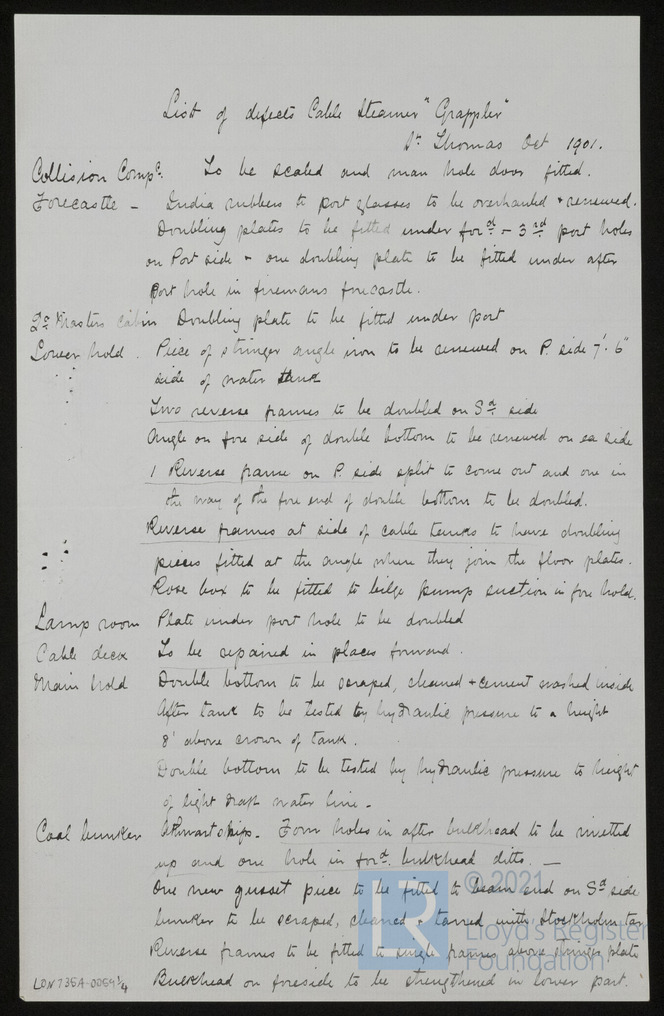 List of defects Cable Steamer "Grappler"
St Thomas Oct 1901.
Collision Compt. To be scaled and man hole door fitted.
Forecastle - India rubbers to port glasses to be overhauled + renewed.
Doubling plates to be fitted under ford - 3rd port holes
on Port side + one doubling plate to be fitted under after
port hole in firemans forecastle.
2nd Masters cabin Doubling plate to be fitted under port
Lower hold. Piece of stringer angle iron to be renewed on P. side 7'-6"
side of water tank
Two reverse frames to be doubled on Sd side
Angle on fore side of double bottom to be renewed on ea side
1 Reverse frame on P. side split to come out and one in
the way of the fore end of double bottom to be doubled.
Reverse frames at side of cable tanks to have doubling
pieces fitted at the angle where they join the floor plates.
Rose box to be fitted to bilge pump suction in fore hold.
Lamp room Plate under port hole to be doubled
Cable deck To be repaired in places forward.
Main hold Double bottom to be scraped, cleaned + cement washed inside
After tank to be tested by hydraulic pressure to a height
8' above crown of tank.
Double bottom to be tested by hydraulic pressure to height
of light draft water line -
Coal bunker Athwartships. Four holes in after bulkhead to be rivetted
up and one hole in ford. bulkhead ditto. -
One new gusset piece to be fitted to beam end on Sd side
bunker to be scraped, cleaned + tarred with Stockholm tar
Reverse frames to be fitted to single frames above stringer plate
Bulkhead on foreside to be strengthened in lower part.
LDN735A-0059 1/4
LR
© 2021
Lloyd's Register
Foundation